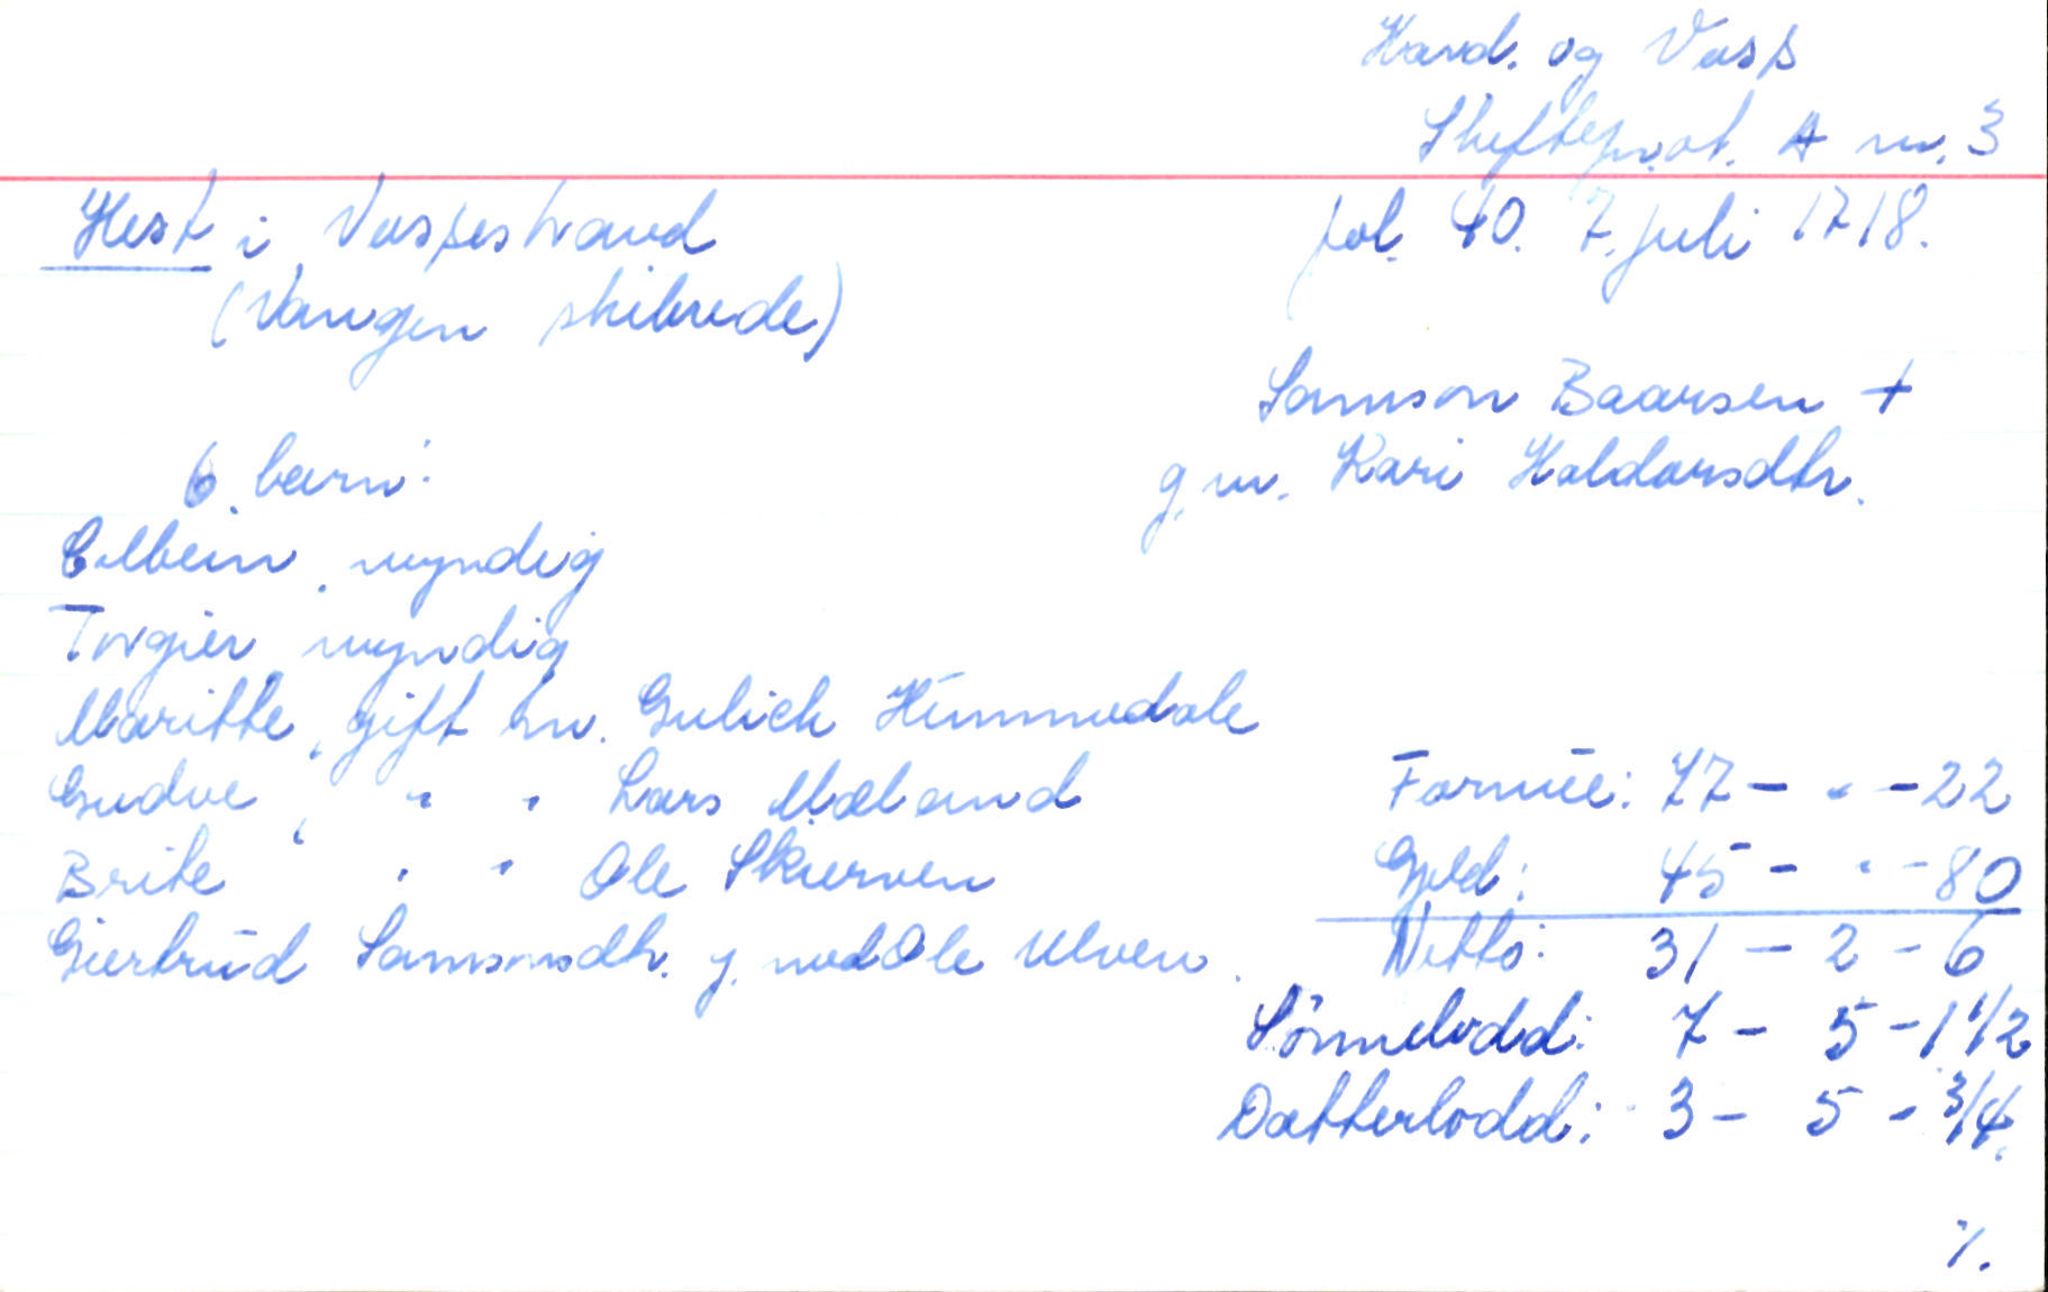 Hard. og Voss
Skifteprot. A nr. 3
Hest i Vossestrand
fol. 40. 7. juli 1718.
(Vangen skibrede)
Samson Baarsen +
g.m. Kari Haldorsdtr.
6 barn:
Colbein, myndig
Torgier myndig
Maritte, gift m. Gulich Himmedale
Gudve, " " Lars Mæland
Formue: 77 - " - 22
Brite " " Ole Skierven
Gjeld: 45 - " - 80
Giertrud Samsonsdtr. g. med Ole Ulven.
Netto: 31 - 2 - 6
Sönnelodd: 7 - 5 - 1 1/2
Datterlodd: 3 - 5 - 3/4.
%.